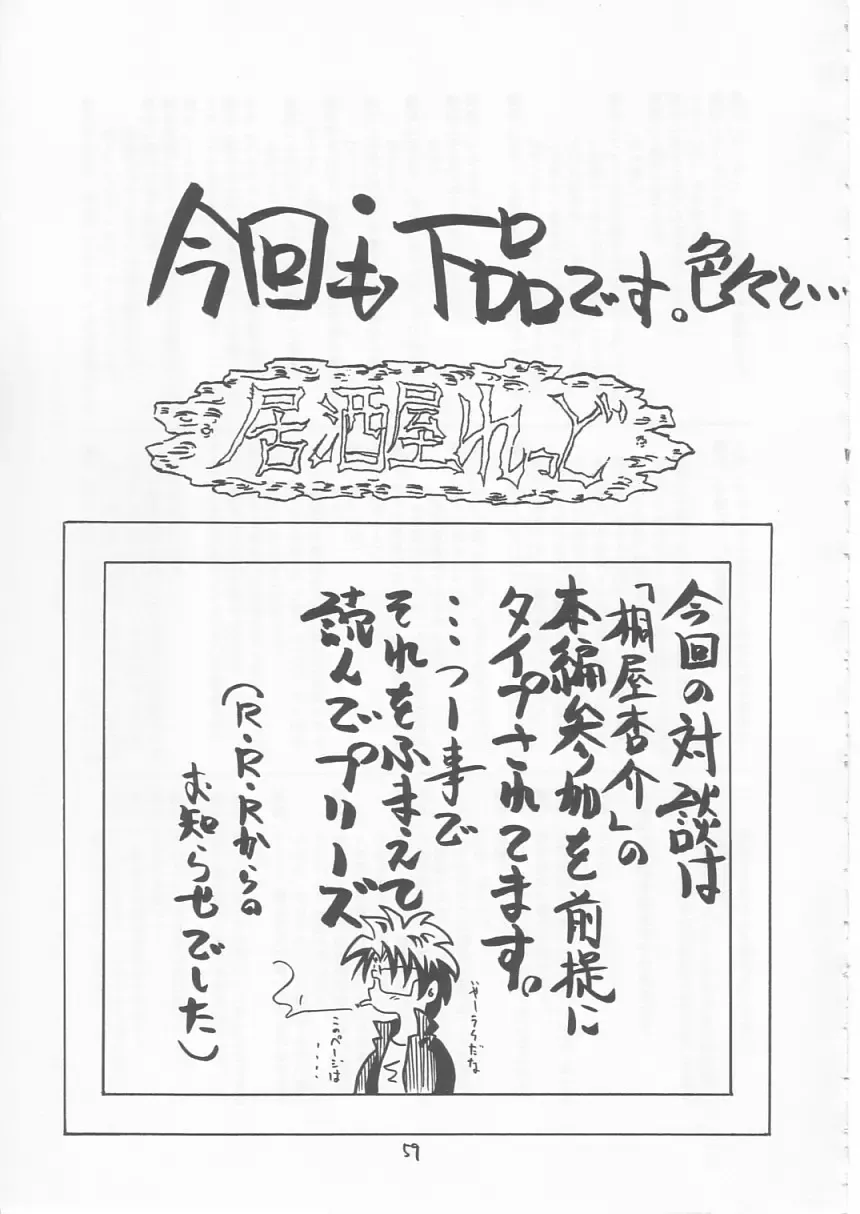 今回も下品です。色々と…
居酒屋れっど
今回の対談は
「桐屋杏介」の
本編参加を前提に
タイプされてます。
…つー事で
それをふまえて
読んでプリーズ
(R・R・Rからの
お知らせでした)
このページは
....
59